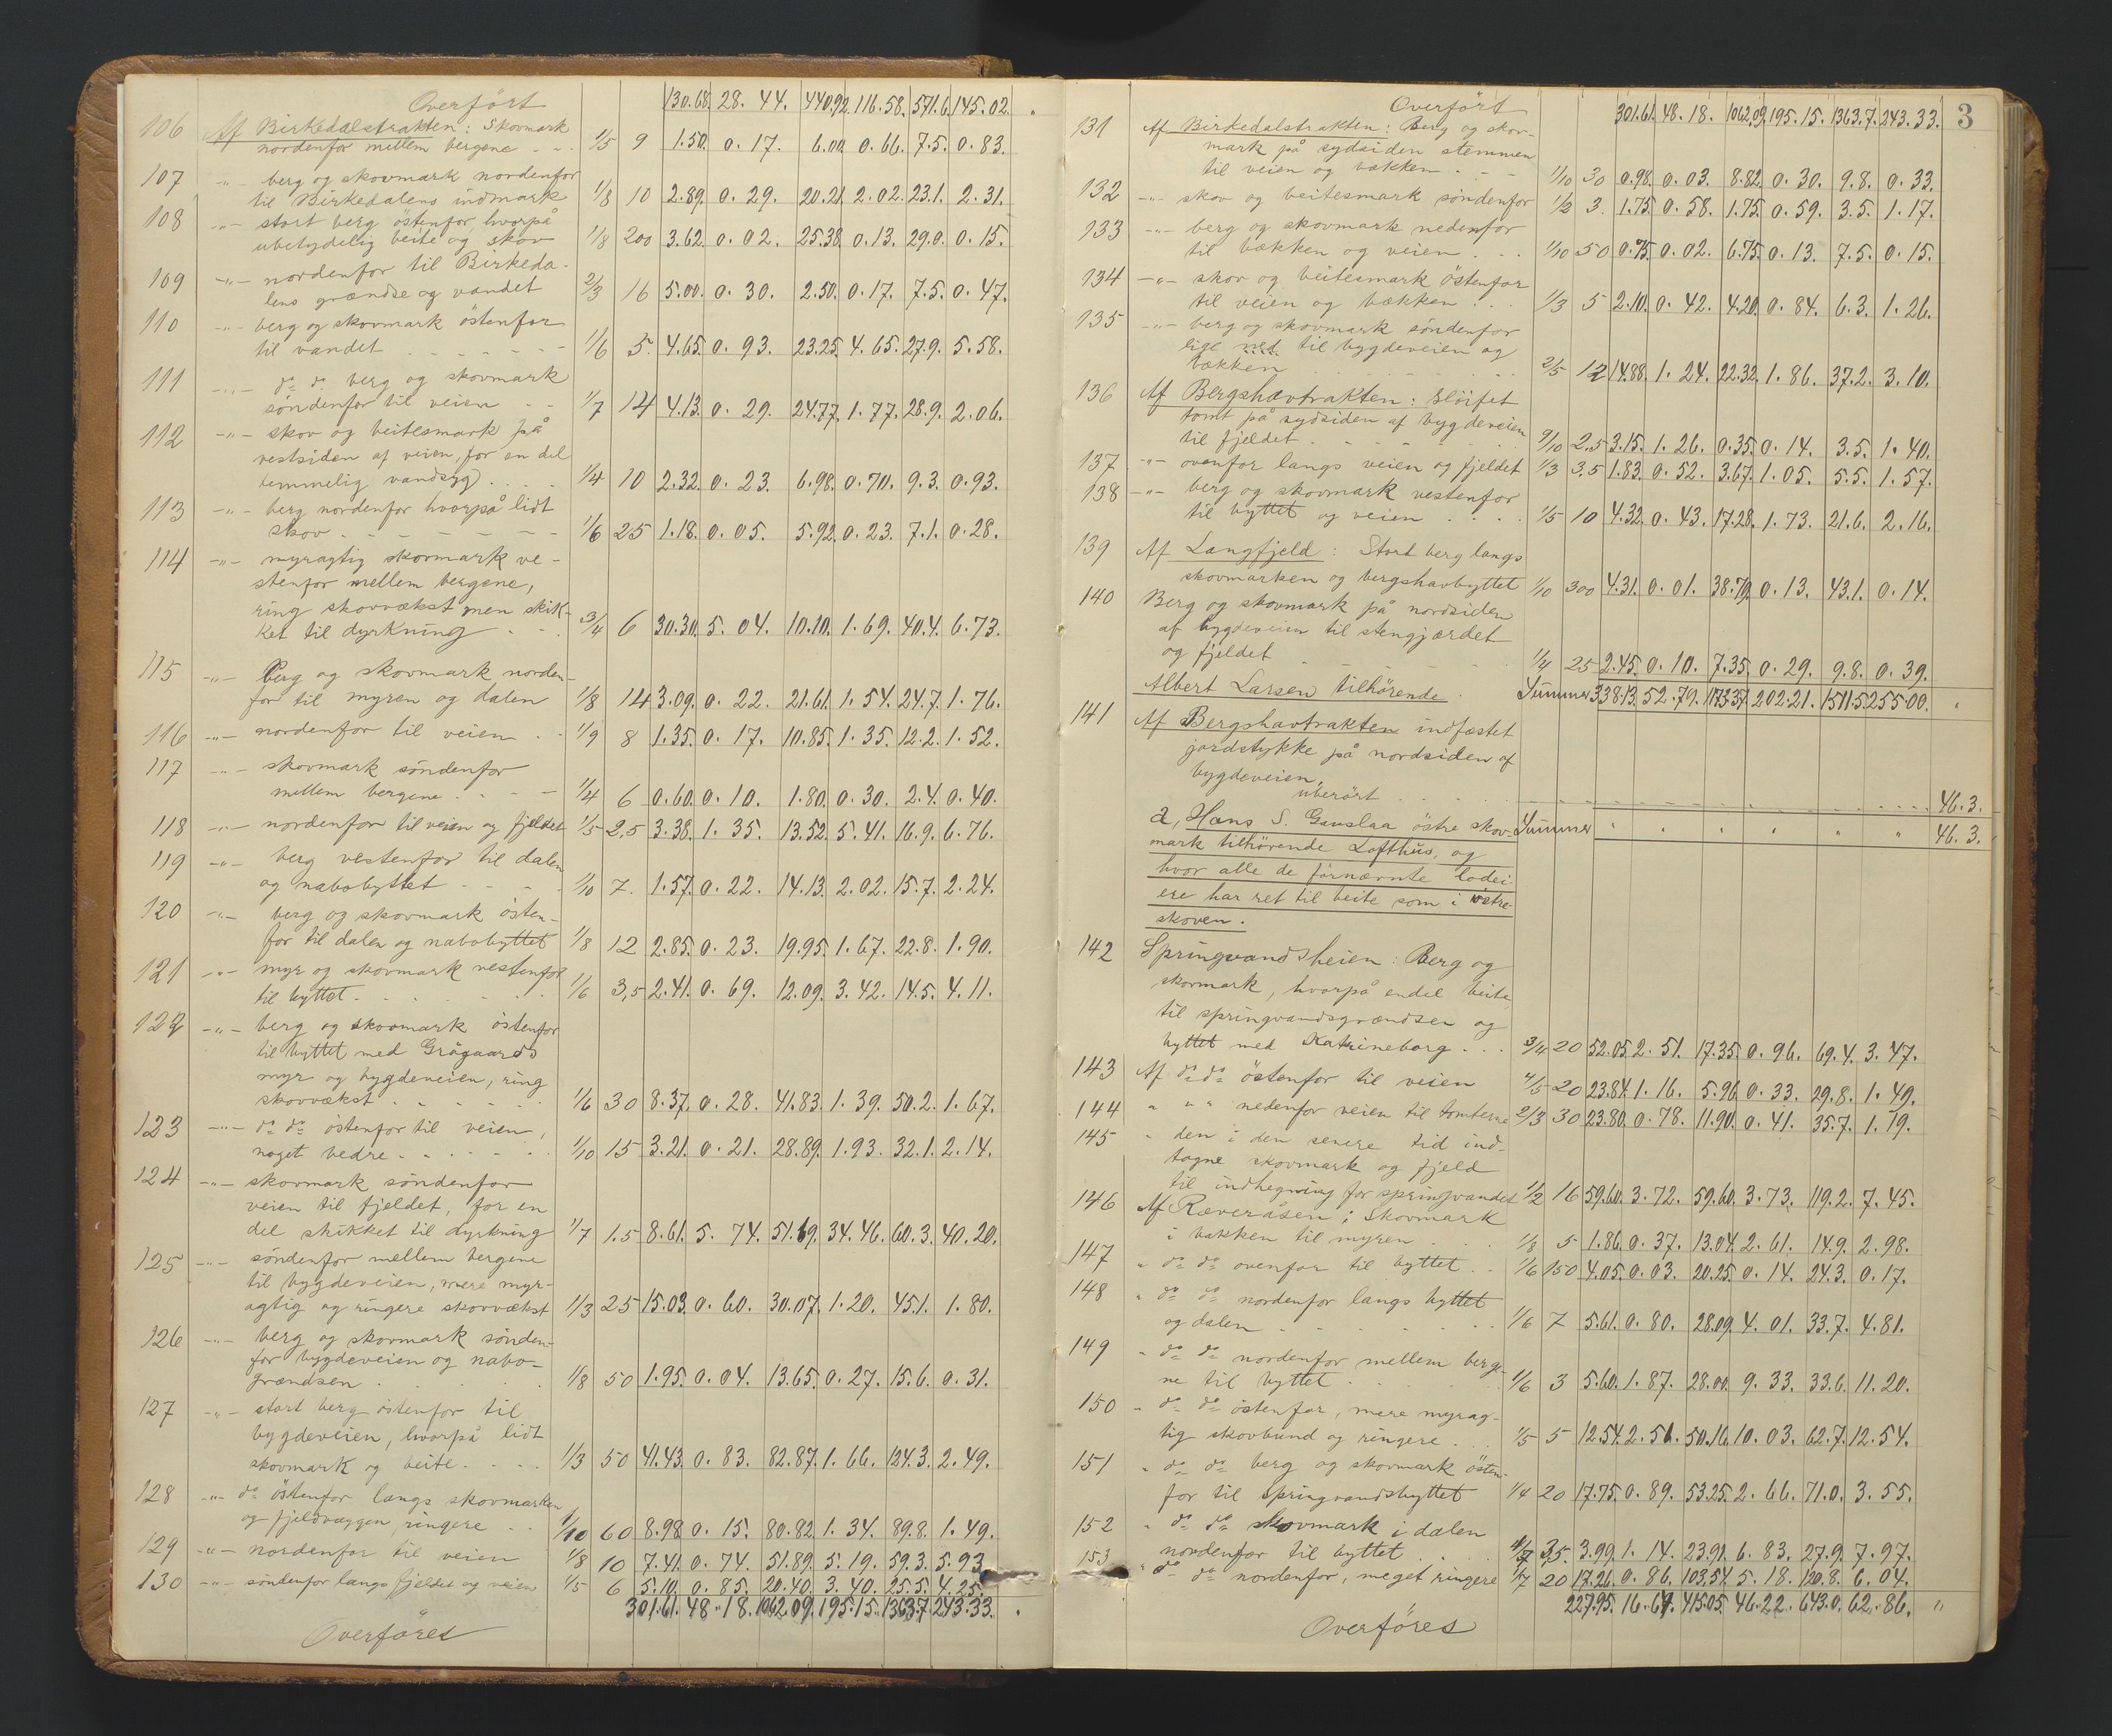 Overført 130.68. 28. 44. 440.92. 116.58. 571.6. 145.02.
106 Af Birkedalstrakten: Skovmark
nordenfor mellem bergene 1/5 9 1.50. 0. 17. 6.00. 0.66. 7.5. 0.83.
107 -"- berg og skovmark nordenfor
til Birkedalens indmark 1/8 10 2.89. 0. 29. 20.21. 2.02. 23.1. 2.31.
108 -"- stort berg östenfor, hvorpå
ubetydelig beite og skov 1/8 200 3.62. 0. 02. 25.38. 0.13. 29.0. 0.15.
109 -"- nordenfor til Birkeda-
lens grændse og vandet 2/3 16 5.00. 0. 30. 2.50. 0.17. 7.5. 0.47.
110 -"- berg og skovmark östenfor
til vandet 1/6 5. 4.65. 0. 93. 23.25. 4.65. 27.9. 5.58.
111 -"- do do berg og skovmark
söndenfor til veien 1/7 14 4.13. 0. 29. 24.77. 1.77. 28.9. 2.06.
112 -"- skov og beitesmark på
vestsiden af veien, for en del
temmelig vandsyg) 1/4 10 2.32. 0. 23. 6.98. 0.70. 9.3. 0.93.
113 -"- berg nordenfor hvorpå lidt
skov 1/6 25 1.18. 0. 05. 5.92. 0.23. 7.1. 0.28.
114 -"- myragtig skovmark ve-
stenfor mellem bergene,
ring skovvækst men skik-
ket til dyrkning 3/4 6 30.30. 5. 04. 10.10. 1.69. 40.4. 6.73.
115 -"- Berg og skovmark norden-
for til myren og dalen 1/8 14 3.09. 0. 22. 21.61. 1.54. 24.7. 1.76.
116 -"- nordenfor til veien 1/9 8 1.35. 0. 17. 10.85. 1.35. 12.2. 1.52.
117 -"- skovmark söndenfor
mellem bergene 1/4 6 0.60. 0. 10. 1.80. 0.30. 2.4. 0.40.
118 -"- nordenfor til veien og fjeldet 1/5 2,5 3.38. 1. 35. 13.52. 5.41. 16.9. 6.76.
119 -"- berg vestenfor til dalen
og nabobyttet 1/10 7. 1.57. 0. 22. 14.13. 2.02. 15.7. 2.24.
120 -"- berg og skovmark östen-
for til dalen og nabobyttet 1/8 12 2.85. 0. 23. 19.95. 1.67. 22.8. 1.90.
121 -"- myr og skovmark vestenfor
til byttet 1/6 3,5 2.41. 0. 69. 12.09. 3.42. 14.5. 4.11.
122 -"- berg og skovmark östenfor
til byttet med Grågaards
myr og bygdeveien, ring
skovvækst 1/6 30 8.37. 0. 28. 41.83. 1.39. 50.2. 1.67.
123 -"- do do östenfor til veien,
noget bedre 1/10 15 3.21. 0. 21. 28.89. 1.93. 32.1. 2.14.
124 -"- skovmark söndenfor
veien til fjeldet, for en
del skikket til dyrkning 1/7 1.5 8.61. 5. 74. 51.69. 34.46. 60.3. 40.20.
125 -"- söndenfor mellem bergene
til bygdeveien, mere myr-
agtig og ringere skovvækst 1/3 25 15.03. 0. 60. 30.07. 1.20. 45.1. 1.80.
126 -"- berg og skovmark sönden-
for bygdeveien og nabo-
grændsen 1/8 50 1.95. 0. 04. 13.65. 0.27. 15.6. 0.31.
127 -"- stort berg östenfor til
bygdeveien, hvorpå lidt
skovmark og beite 1/3 50 41.43. 0. 83. 82.87. 1.66. 124.3. 2.49.
128 -"- do östenfor langs skovmarken
og fjeldvæggen, ringere 1/10 60 8.98. 0. 15. 80.82. 1.34. 89.8. 1.49.
129 -"- nordenfor til veien 1/8 10 7.41. 0. 74. 51.89. 5.19. 59.3. 5.93
130 -"- söndenfor langs fjeldet og veien 1/5 6 5.10. 0. 85. 20.40. 3.40. 25.5. 4.25.
301.61. 48.18. 1062.09. 195.15. 1363.7. 243.33.
Overføres
Overført 301.61. 48. 18. 1062.09. 195.15. 1363.7. 243.33. 3
131 Af Birkedalstrakten: Berg og skov-
mark på sydsiden stemmen
til veien og bækken 1/10 30 0.98. 0. 03. 8.82. 0. 30. 9.8. 0.33.
132 -"- skov og beitesmark söndenfor 1/2 3. 1.75. 0.58. 1.75. 0.59. 3.5. 1.17.
133 -"- berg og skovmark nedenfor
til bækken og veien 1/10 50 0.75. 0.02. 6.75. 0.13. 7.5. 0.15.
134 -"- skov og beitesmark östenfor
til veien og bækken 1/3 5 2.10. 0. 42. 4.20. 0.84. 6.3. 1.26.
135 -"- berg og skovmark söndenfor
lige ned til bygdeveien og
bækken 2/5 12 14.88. 1. 24. 22.32. 1.86. 37.2. 3.10.
136 Af Bergshavtrakten: Slöifet
tomt på sydsiden af bygdeveien
til fjeldet 9/10 2,5 3.15. 1. 26. 0.35. 0.14. 3.5. 1.40.
137 -"- ovenfor langs veien og fjeldet 1/3 3,5 1.83. 0. 52. 3.67. 1.05. 5.5. 1.57.
138 -"- berg og skovmark vestenfor
til byttet og veien 1/5 10 4.32. 0. 43. 17.28. 1.73. 21.6. 2.16.
139 Af Langfjeld: Stort berg langs
skovmarken og bergshavbyttet 1/10 300 4.31. 0. 01. 38.79. 0.13. 43.1. 0.14.
140 Berg og skovmark på nordsiden
af bygdeveien til stengjærdet
og fjeldet 1/4 25 2.45. 0. 10. 7.35. 0.29. 9.8. 0.39.
Albert Larsen tilhörende. Summer 338.13. 52.79. 1173.37. 202.21. 1511.5. 255.00.
141 Af Bergshavtrakten indfæstet
jordstykke på nordsiden af
bygdeveien,
uberört 46.3.
a, Hans S. Gauslaa östre skov- Summer " " " " " " 46.3.
mark tilhörende Lofthus, og
hvor alle de fornævnte lodei-
ere har ret til beite som i vestre-
skoven.
142 Springvandsheien: Berg og
skovmark, hvorpå endel beite
til springvandsgrændsen og
byttet med Katrineborg 3/4 20 52.05. 2. 51. 17.35. 0.96. 69.4. 3.47.
143 Af do do östenfor til veien 4/5 20 23.84. 1.16. 5.96. 0.33. 29.8. 1.49.
144 " " " nedenfor veien til tomterne 2/3 30 23.80. 0.78. 11.90. 0.41. 35.7. 1.19.
145 " den i den senere tid ind-
tagne skovmark og fjeld
til indhegning for springvandet 1/2 16 59.60. 3.72. 59.60. 3.73. 119.2. 7.45.
146 Af Ræveråsen: Skovmark
i bakken til myren 1/8 5 1.86. 0.37. 13.04. 2.61. 14.9. 2.98.
147 " do do ovenfor til byttet 1/6 150 4.05. 0.03. 20.25. 0.14. 24.3. 0.17.
148 " do do nordenfor langs byttet
og dalen 1/6 7 5.61. 0.80. 28.09. 4.01. 33.7. 4.81.
149 " do do nordenfor mellem berge-
ne til byttet 1/6 3 5.60. 1.87. 28.00. 9.33. 33.6. 11.20.
150 " do do östenfor, mere myrag-
tig skovbund og ringere 1/5 5 12.54. 2.51. 50.16. 10.03. 62.7. 12.54.
151 " do do berg og skovmark östen-
for til springvandsbyttet 1/4 20 17.75. 0.89. 53.25. 2.66. 71.0. 3.55.
152 " do do skovmark i dalen
nordenfor til byttet 1/7 3,5. 3.99. 1.14. 23.91. 6.83. 27.9. 7.97.
153 " do do nordenfor, meget ringere 1/7 20 17.26. 0.86. 103.54. 5.18. 120.8. 6.04.
227.95. 16.64. 415.05. 46.22. 643.0. 62.86. "
Overføres